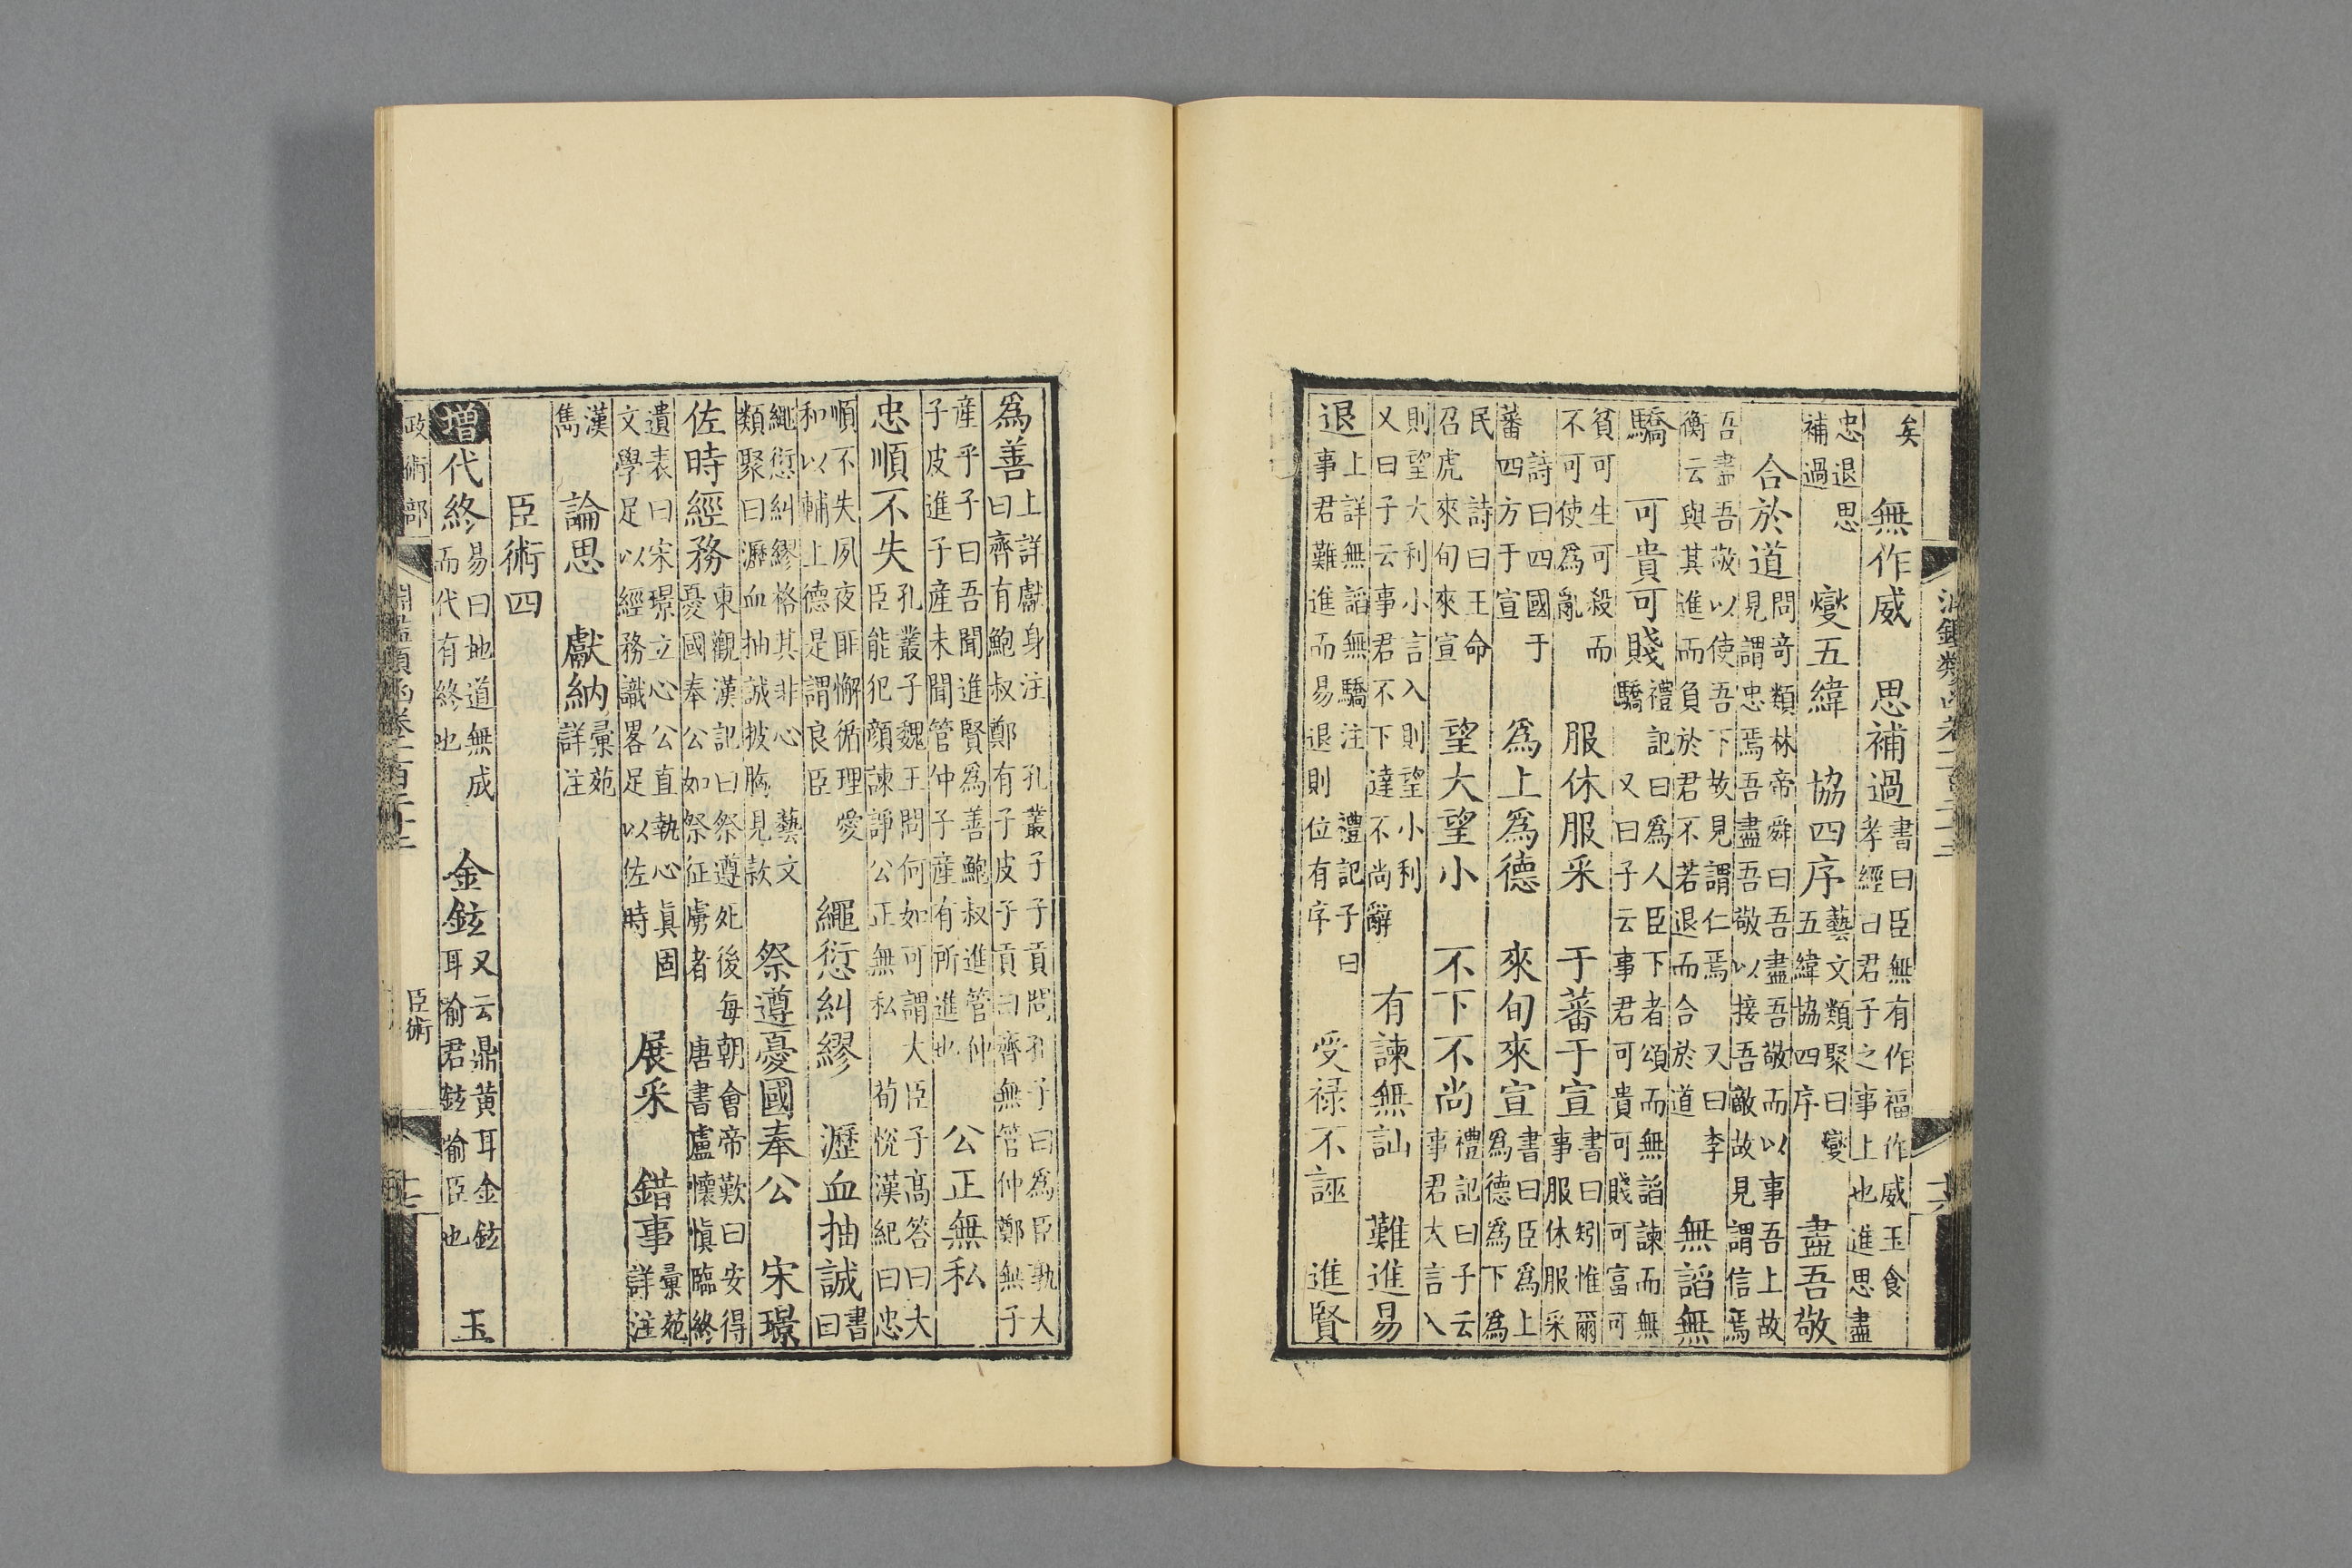 矣　無作威　思補過書曰臣無有作福作威玉食孝經曰君子之事上也進思盡
忠退思補過　燮五緯　協四序藝文類聚曰燮五緯協四序　盡吾敬
合於道問奇類林帝舜曰吾盡吾敬而以事吾上故見謂忠焉吾盡吾敬以接吾敵故見謂信焉
吾盡吾敬以使吾下故見謂仁焉　又曰李衡云與其進而負於君不若退而合於道　無諂無
驕　可貴可賤禮記曰爲人臣下者頌而無諂諫而無驕　又曰子云事君可貴可賤可富可
貧可生可殺而不可使爲亂　服休服采　于蕃于宣書曰矧惟爾事服休服采
詩曰四國于蕃四方于宣　爲上爲德　來旬來宣書曰臣爲上爲德爲下爲
民　詩曰王命召虎來旬來宣　望大望小　不下不尚禮記曰子云事君大言入
則望大利小言入則望小利又曰子云事君不下達不尚辭　有諫無訕　難進易
退上詳無諂無驕注　禮記子曰事君難進而易退則位有序　受祿不誣　進賢
爲善上詳獻身注　孔叢子子貢問孔子曰爲臣孰大曰齊有鮑叔鄭有子皮子貢曰齊無管仲鄭無子
産乎子曰吾聞進賢爲善鮑叔進管仲子皮進子産未聞管仲子産有所進也　公正無私
忠順不失孔叢子魏王問何如可謂大臣子高答曰大臣能犯顔諫諍公正無私　荀悅漢紀曰忠
順不失夙夜匪懈循理愛和以輔上德是謂良臣　繩愆糾繆　瀝血抽誠書曰
繩愆糾繆格其非心　藝文類聚曰瀝血抽誠披胸見款　祭遵憂國奉公　宋璟
佐時經務東觀漢記曰祭遵死後每朝會帝歎曰安得憂國奉公如祭征虜者　唐書盧懷慎臨終
遺表曰宋璟立心公直執心眞固文學足以經務識畧足以佐時　展采　錯事彙苑詳注
漢雋　論思　獻納彙苑詳注
臣術四
增代終易曰地道無成而代有終也　金鉉又云鼎黃耳金鉉耳喻君鉉喻臣也　玉
政術部　淵鑑類函卷一百二十三　臣術　十七